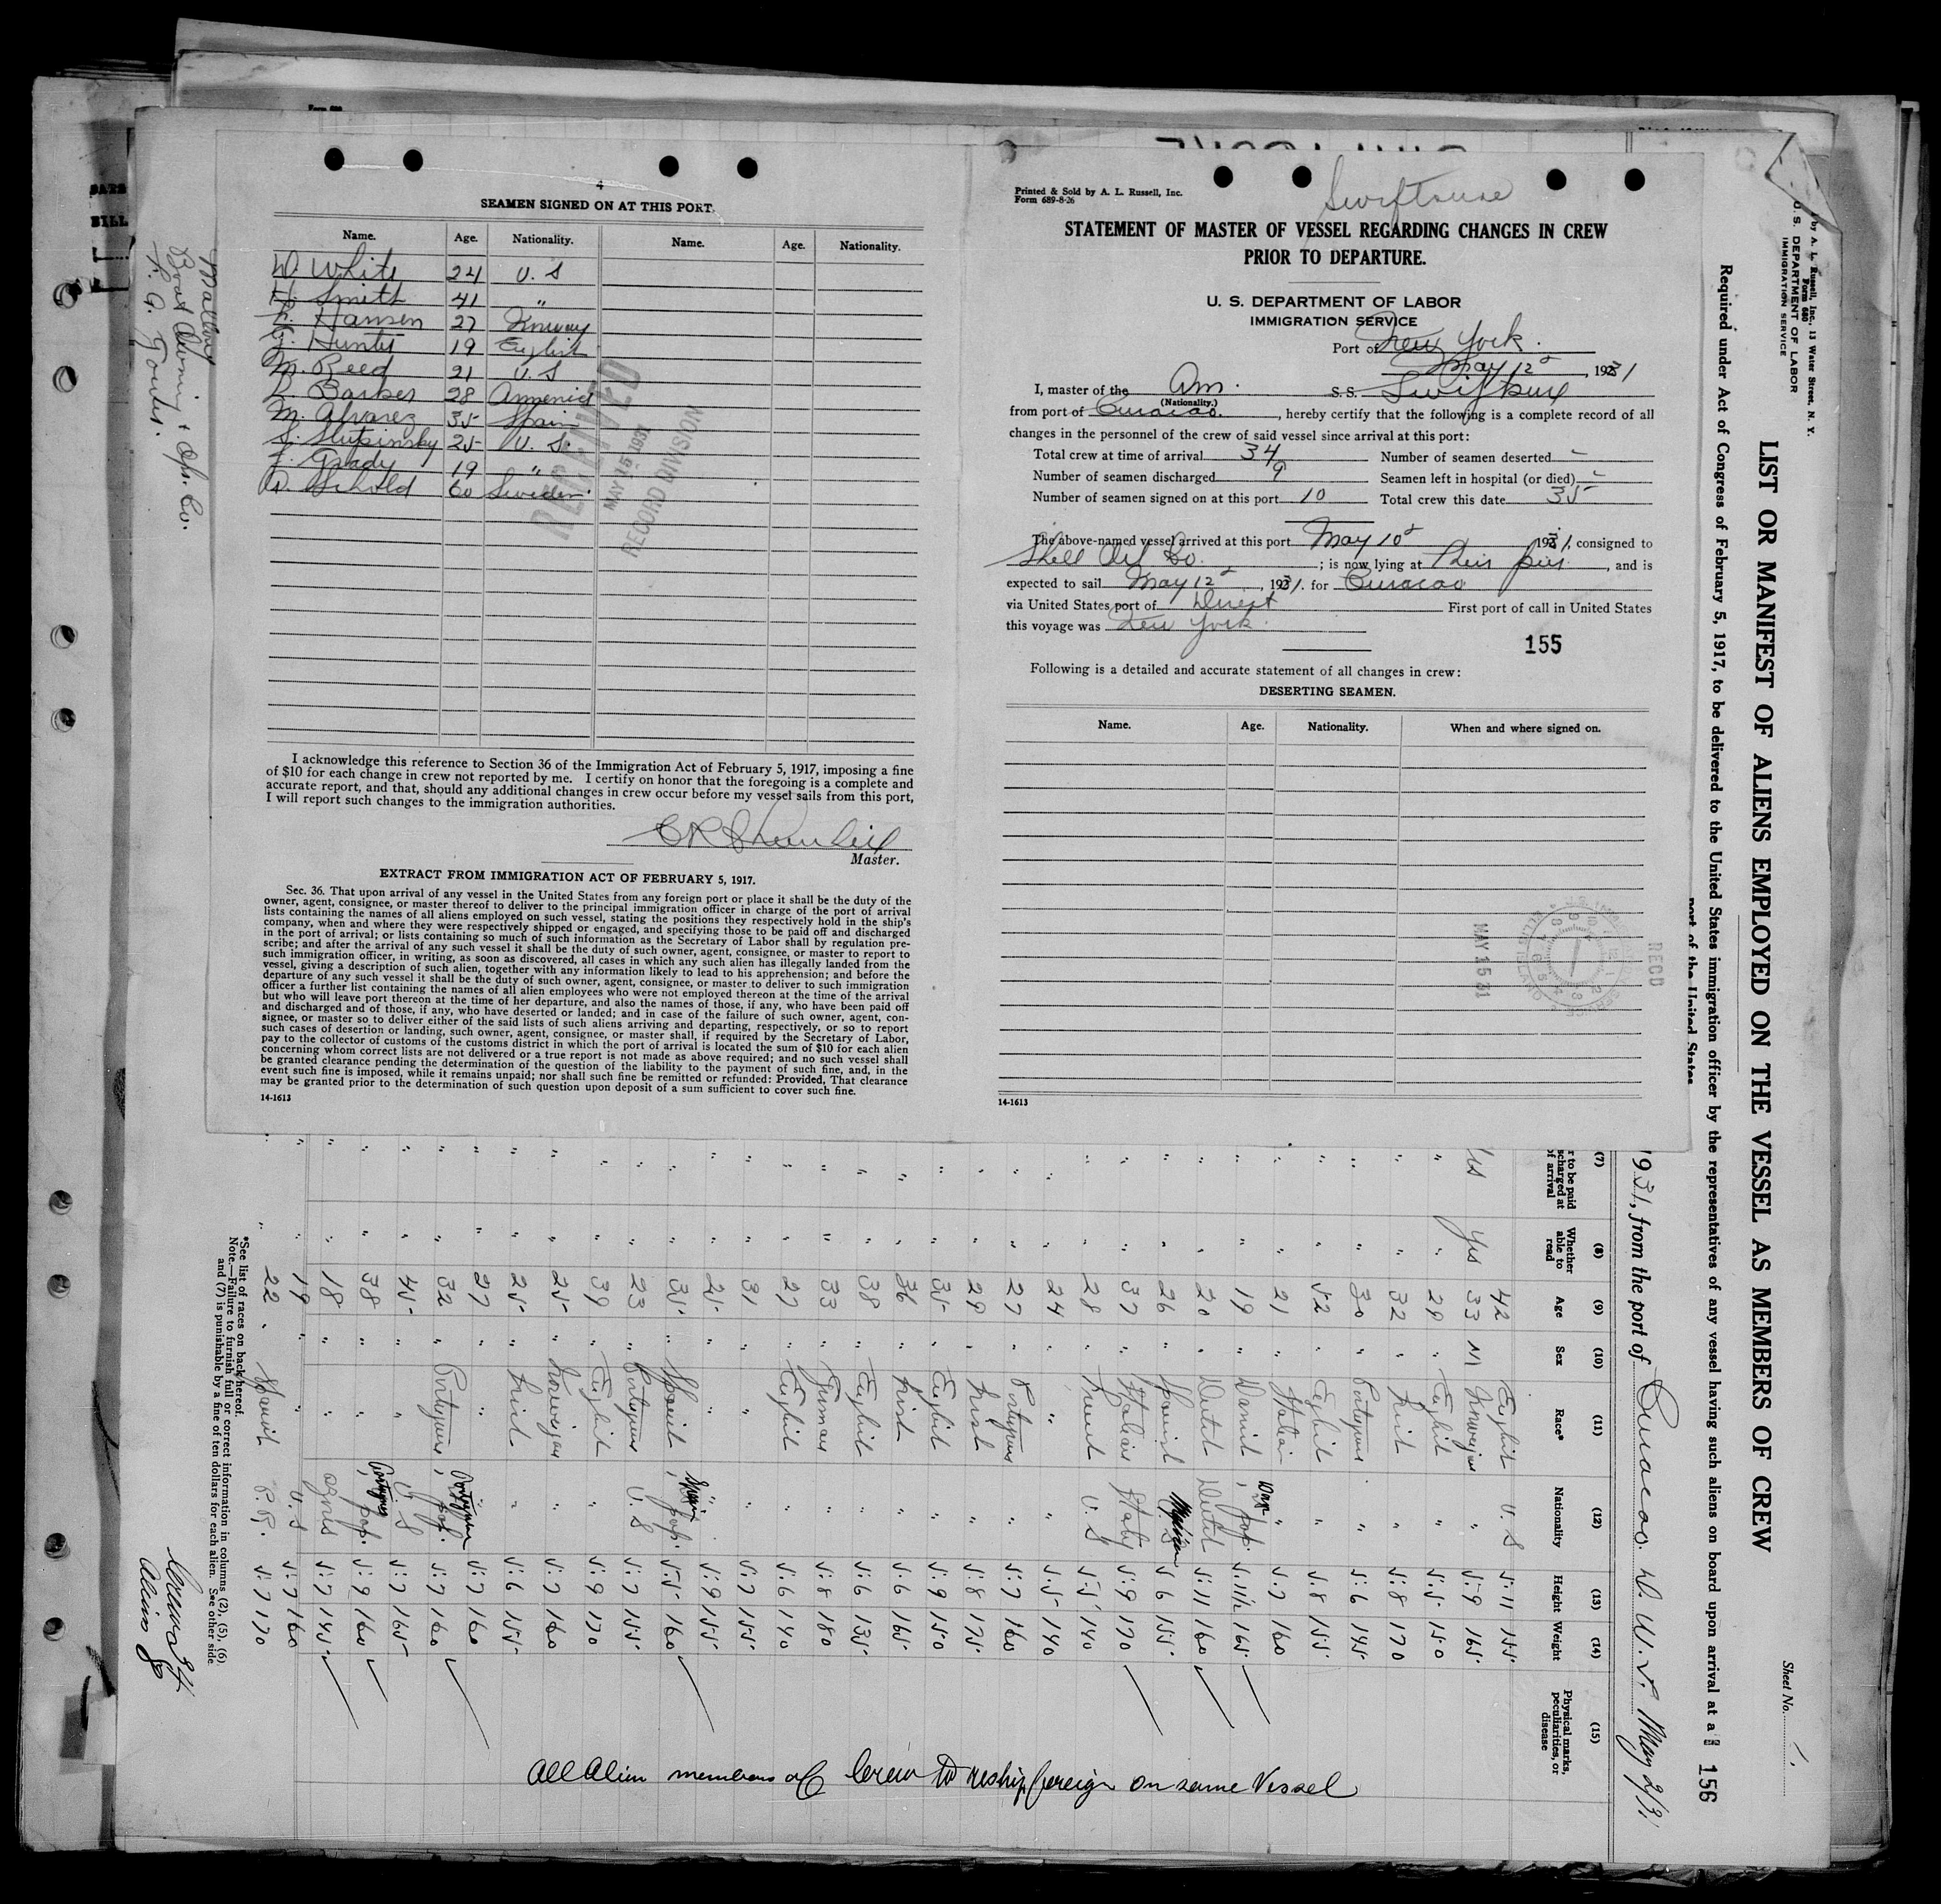 4
SEAMEN SIGNED ON AT THIS PORT.
Name. Age. Nationality. Name. Age. Nationality.
W. White 24 U. S
H. Smith 41 "
Hansen 27 Norway
Hunts 19 English
M. Reed 21 U. S
Barker 28 America
M. Alvarez 35 Spain
S. Slupinsky 25 U. S.
Grady 19 "
60 Sweden
RECEIVED
MAY 15 1931
RECORD DIVISION
I acknowledge this reference to Section 36 of the Immigration Act of February 5, 1917, imposing a fine
of $10 for each change in crew not reported by me. I certify on honor that the foregoing is a complete and
accurate report, and that, should any additional changes in crew occur before my vessel sails from this port,
I will report such changes to the immigration authorities.
Master.
EXTRACT FROM IMMIGRATION ACT OF FEBRUARY 5, 1917.
Sec. 36. That upon arrival of any vessel in the United States from any foreign port or place it shall be the duty of the
owner, agent, consignee, or master thereof to deliver to the principal immigration officer in charge of the port of arrival
lists containing the names of all aliens employed on such vessel, stating the positions they respectively hold in the ship's
company, when and where they were respectively shipped or engaged, and specifying those to be paid off and discharged
in the port of arrival; or lists containing so much of such information as the Secretary of Labor shall by regulation pre-
scribe; and after the arrival of any such vessel it shall be the duty of such owner, agent, consignee, or master to report to
such immigration officer, in writing, as soon as discovered, all cases in which any such alien has illegally landed from the
vessel, giving a description of such alien, together with any information likely to lead to his apprehension; and before the
departure of any such vessel it shall be the duty of such owner, agent, consignee, or master to deliver to such immigration
officer a further list containing the names of all alien employees who were not employed thereon at the time of the arrival
but who will leave port thereon at the time of her departure, and also the names of those, if any, who have been paid off
and discharged and of those, if any, who have deserted or landed; and in case of the failure of such owner, agent, con-
signee, or master so to deliver either of the said lists of such aliens arriving and departing, respectively, or so to report
such cases of desertion or landing, such owner, agent, consignee, or master shall, if required by the Secretary of Labor,
pay to the collector of customs of the customs district in which the port of arrival is located the sum of $10 for each alien
concerning whom correct lists are not delivered or a true report is not made as above required; and no such vessel shall
be granted clearance pending the determination of the question of the liability to the payment of such fine, and, in the
event such fine is imposed, while it remains unpaid; nor shall such fine be remitted or refunded: Provided, That clearance
may be granted prior to the determination of such question upon deposit of a sum sufficient to cover such fine.
14-1613
Printed & Sold by A. L. Russell, Inc.
Form 689-8-26
STATEMENT OF MASTER OF VESSEL REGARDING CHANGES IN CREW
PRIOR TO DEPARTURE.
U. S. DEPARTMENT OF LABOR
IMMIGRATION SERVICE
Port of New York.
May 12, 1931
I, master of the Am. S.S. Swiftsure
(Nationality.)
from port of Curacao., hereby certify that the following is a complete record of all
changes in the personnel of the crew of said vessel since arrival at this port:
Total crew at time of arrival 34 Number of seamen deserted -
Number of seamen discharged 9 Seamen left in hospital (or died) -
Number of seamen signed on at this port 10 Total crew this date 35
The above-named vessel arrived at this port May 10 1931, consigned to
Shell Oil Co. ; is now lying at their pier, and is
expected to sail May 12, 1931. for Curacao
via United States port of Direct First port of call in United States
this voyage was New York.
155
Following is a detailed and accurate statement of all changes in crew:
DESERTING SEAMEN.
Name. Age. Nationality. When and where signed on.
RECD
MAY 15 31
14-1613
by A. L. Russell, Inc., 13 Water Street, N. Y.
Form 680
U. S. DEPARTMENT OF LABOR
IMMIGRATION SERVICE
Sheet No. 1
LIST OR MANIFEST OF ALIENS EMPLOYED ON THE VESSEL AS MEMBERS OF CREW
Required under Act of Congress of February 5, 1917, to be delivered to the United States immigration officer by the representatives of any vessel having such aliens on board upon arrival at a
port of the United States
156
1931, from the port of Curacao. D. W. I. May 2/31
(7) (8) (9) (10) (11) (12) (13) (14) (15)
Whether able to read Age Sex Race* Nationality Height Weight Physical marks, peculiarities, or disease
42 English U. S 5:11 155
Yes Yes 33 M Norwegian " 5:9 165
" " 29 " English " 5:5 150
" " 32 " Irish " 5:8 170
" " 30 " Portuguese " 5:6 145
" " 52 " English " 5:8 155
" " 21 " Italian " 5:7 160
" " 19 " Danish 5:11½ 165
" " 20 " Dutch Dutch 5:11 160
" " 26 " Spanish 5 6 155
" " 37 " Italian Italy 5:9 170
" " 28 " French U. S 5:5 140
" " 24 " " " 5:5 140
" " 27 " Portuguese " 5:7 160
" " 29 " Irish " 5:8 175
" " 35 " English " 5:9 150
" " 36 " Irish " 5:6 165
" " 38 " English " 5:6 135
" " 33 " German " 5:8 180
" " 27 " English " 5:6 140
" " 31 " " " 5:7 155
" " 25 " " " 5:9 155
" " 35 " Spanish 5:5 160
" " 23 " Portuguese U. S 5:7 155
" " 39 " English " 5:9 170
" " 25 " Norwegian " 5:7 160
" " 25 " Irish " 5:6 155
" " 27 " " " 5:7 160
" " 32 " Portuguese 5:7 160
" " 45 " " U. S 5:7 165
" " 38 " " 5:9 160
" " 18 " " 5:7 145
" " 19 " " U. S 5:7 160
" " 22 " Spanish P. R. 5:7 170
*See list of races on back hereof.
Note.—Failure to furnish full or correct information in columns (2), (5), (6)
and (7) is punishable by a fine of ten dollars for each alien. See other side
All Alien members of Crew to reship foreign on same Vessel